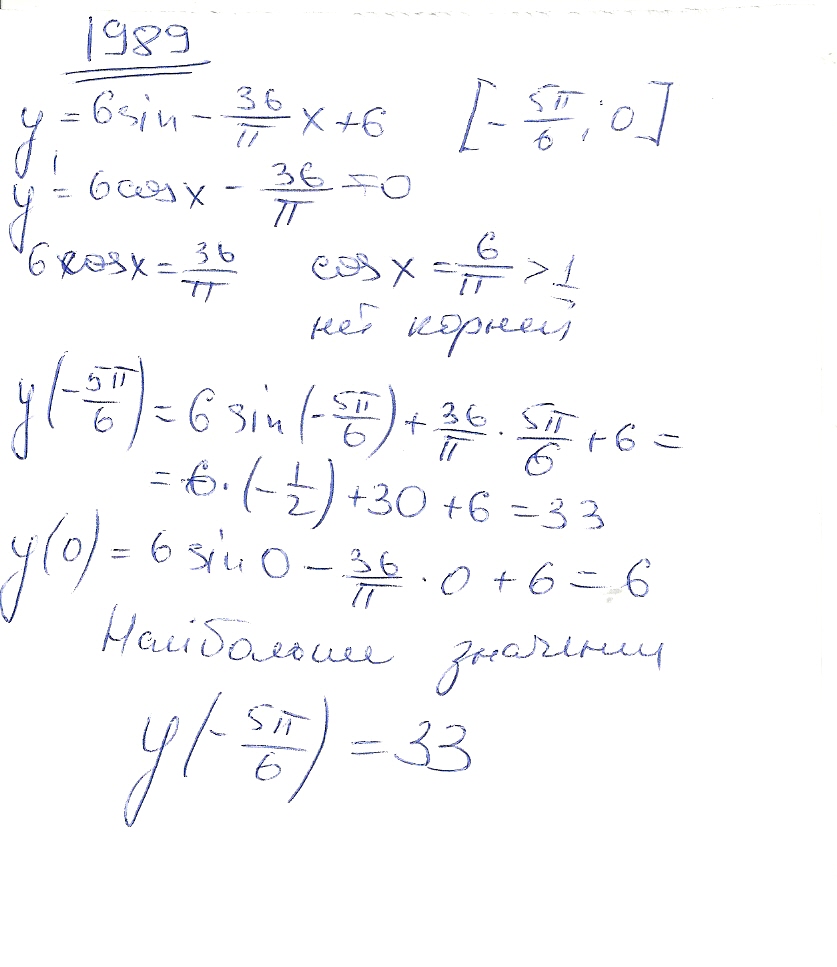 1989
y = 6 sin - 36/π x + 6 [-5π/6; 0]
y' = 6 cos x - 36/π = 0
6 cos x = 36/π cos x = 6/π > 1
нет корней
y(-5π/6) = 6 sin(-5π/6) + 36/π · 5π/6 + 6 =
= 6 · (-1/2) + 30 + 6 = 33
y(0) = 6 sin 0 - 36/π · 0 + 6 = 6
Наибольшее значении
y(-5π/6) = 33